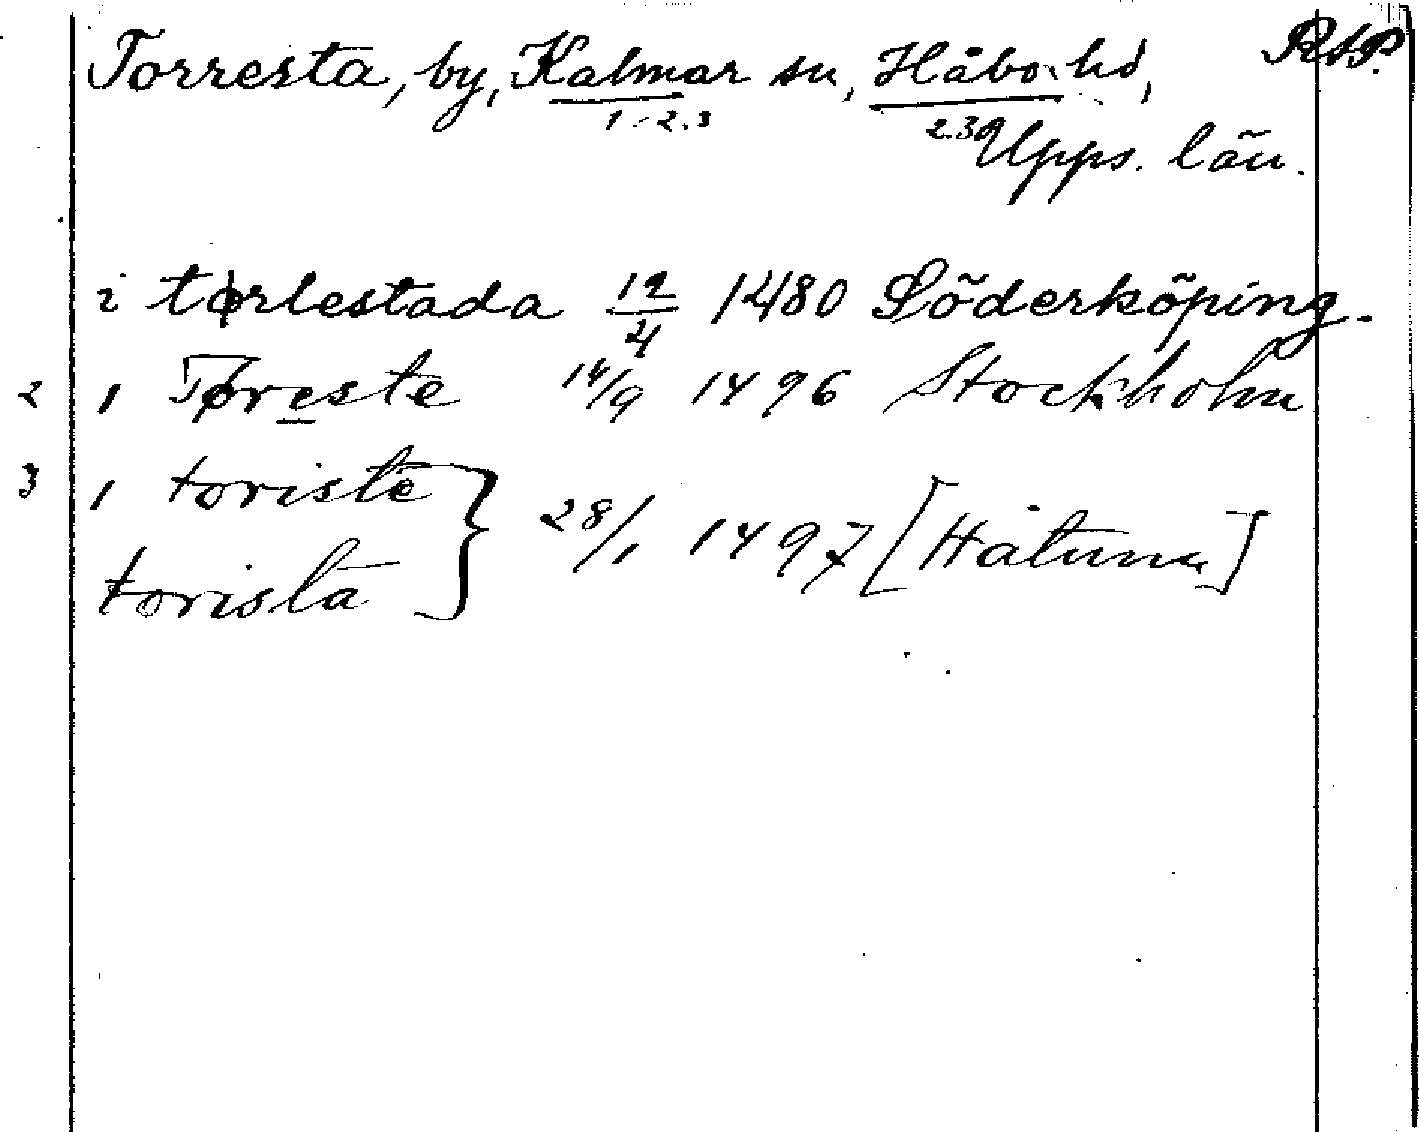 Torresta, by, Kalmar sn, Håbo hd, RAP.
1. 2. 3 2. 3
Upps. län.
i tørlestada 12/4 1480 Söderköping.
2 i Tøreste 14/9 1496 Stockholm
3 i toriste } 28/1 1497 [Håtuna]
torista